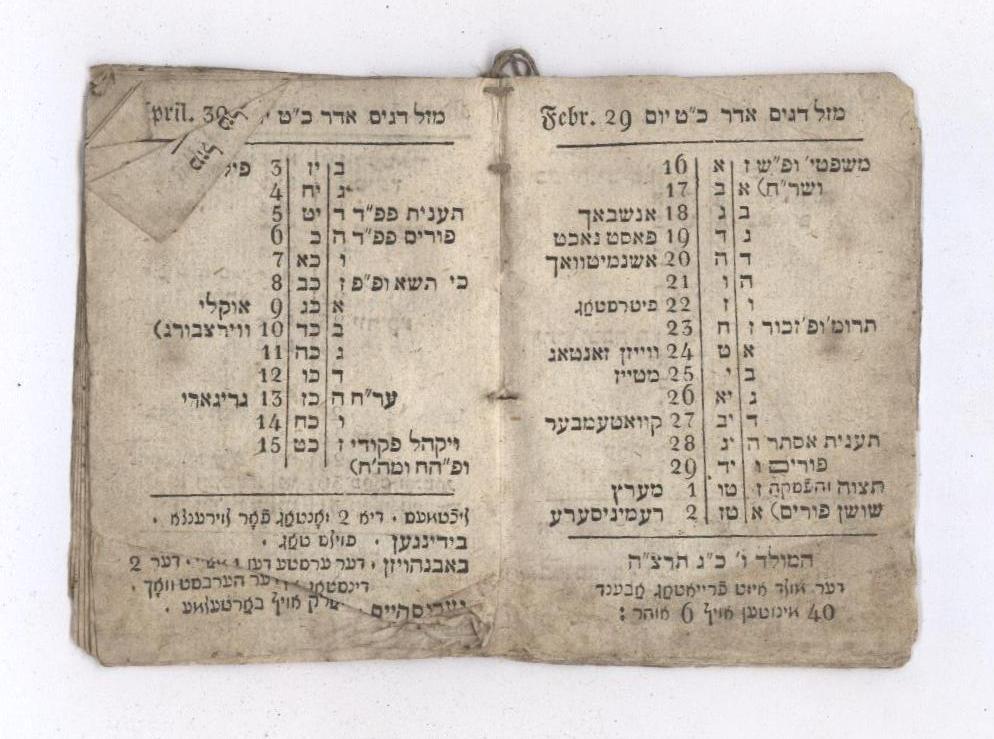 מזל דגים אדר כ״ט יום Febr. 29
משפטי׳ ופ״ש ז א 16
ושר״ח) א ב 17
ב ג 18 אנשבאך
ג ד 19 פאסט נאכט
ד ה 20 אשנמיטוואך
ה ו 21
ו ז 22 פיטרסטאג
תרומ׳ ופ׳ זכור ז ח 23
א ט 24 ווייזן זאנטאג
ב י 25 מטייז
ג יא 26
ד יב 27 קוואטעמבער
תענית אסתר ה יג 28
פורים ו יד 29
תצוה והפסקה ז טו 1 מערץ
שושן פורים) א טז 2 רעמיניסערע
המולד ו׳ כ״ג תרצ״ה
דער מולד איזט פרייאטאג אבענד
40 מינוטען אויף 6 אוהר :
מזל דגים אדר כ״ט pril. 30
מזל
ב יז 3
ג יח 4
תענית פפ״ד ד יט 5
פורים פפ״ד ה כ 6
ו כא 7
כי תשא ופ״פ ז כב 8
א כג 9 אוקלי
ב כד 10 ווירצבורג)
ג כה 11
ד כו 12
ער״ח ה כז 13 גריגארי
ו כח 14
ויקהל פקודי ז כט 15
ופ״הח ומה׳ח)
דיא 2 מאנטאג פאר
בידינגען . טאג .
באבנהויזן . דער ערסטע דער 2
דינסטאג דער הערבסט וואך .
מארק אויף בארטלמא .